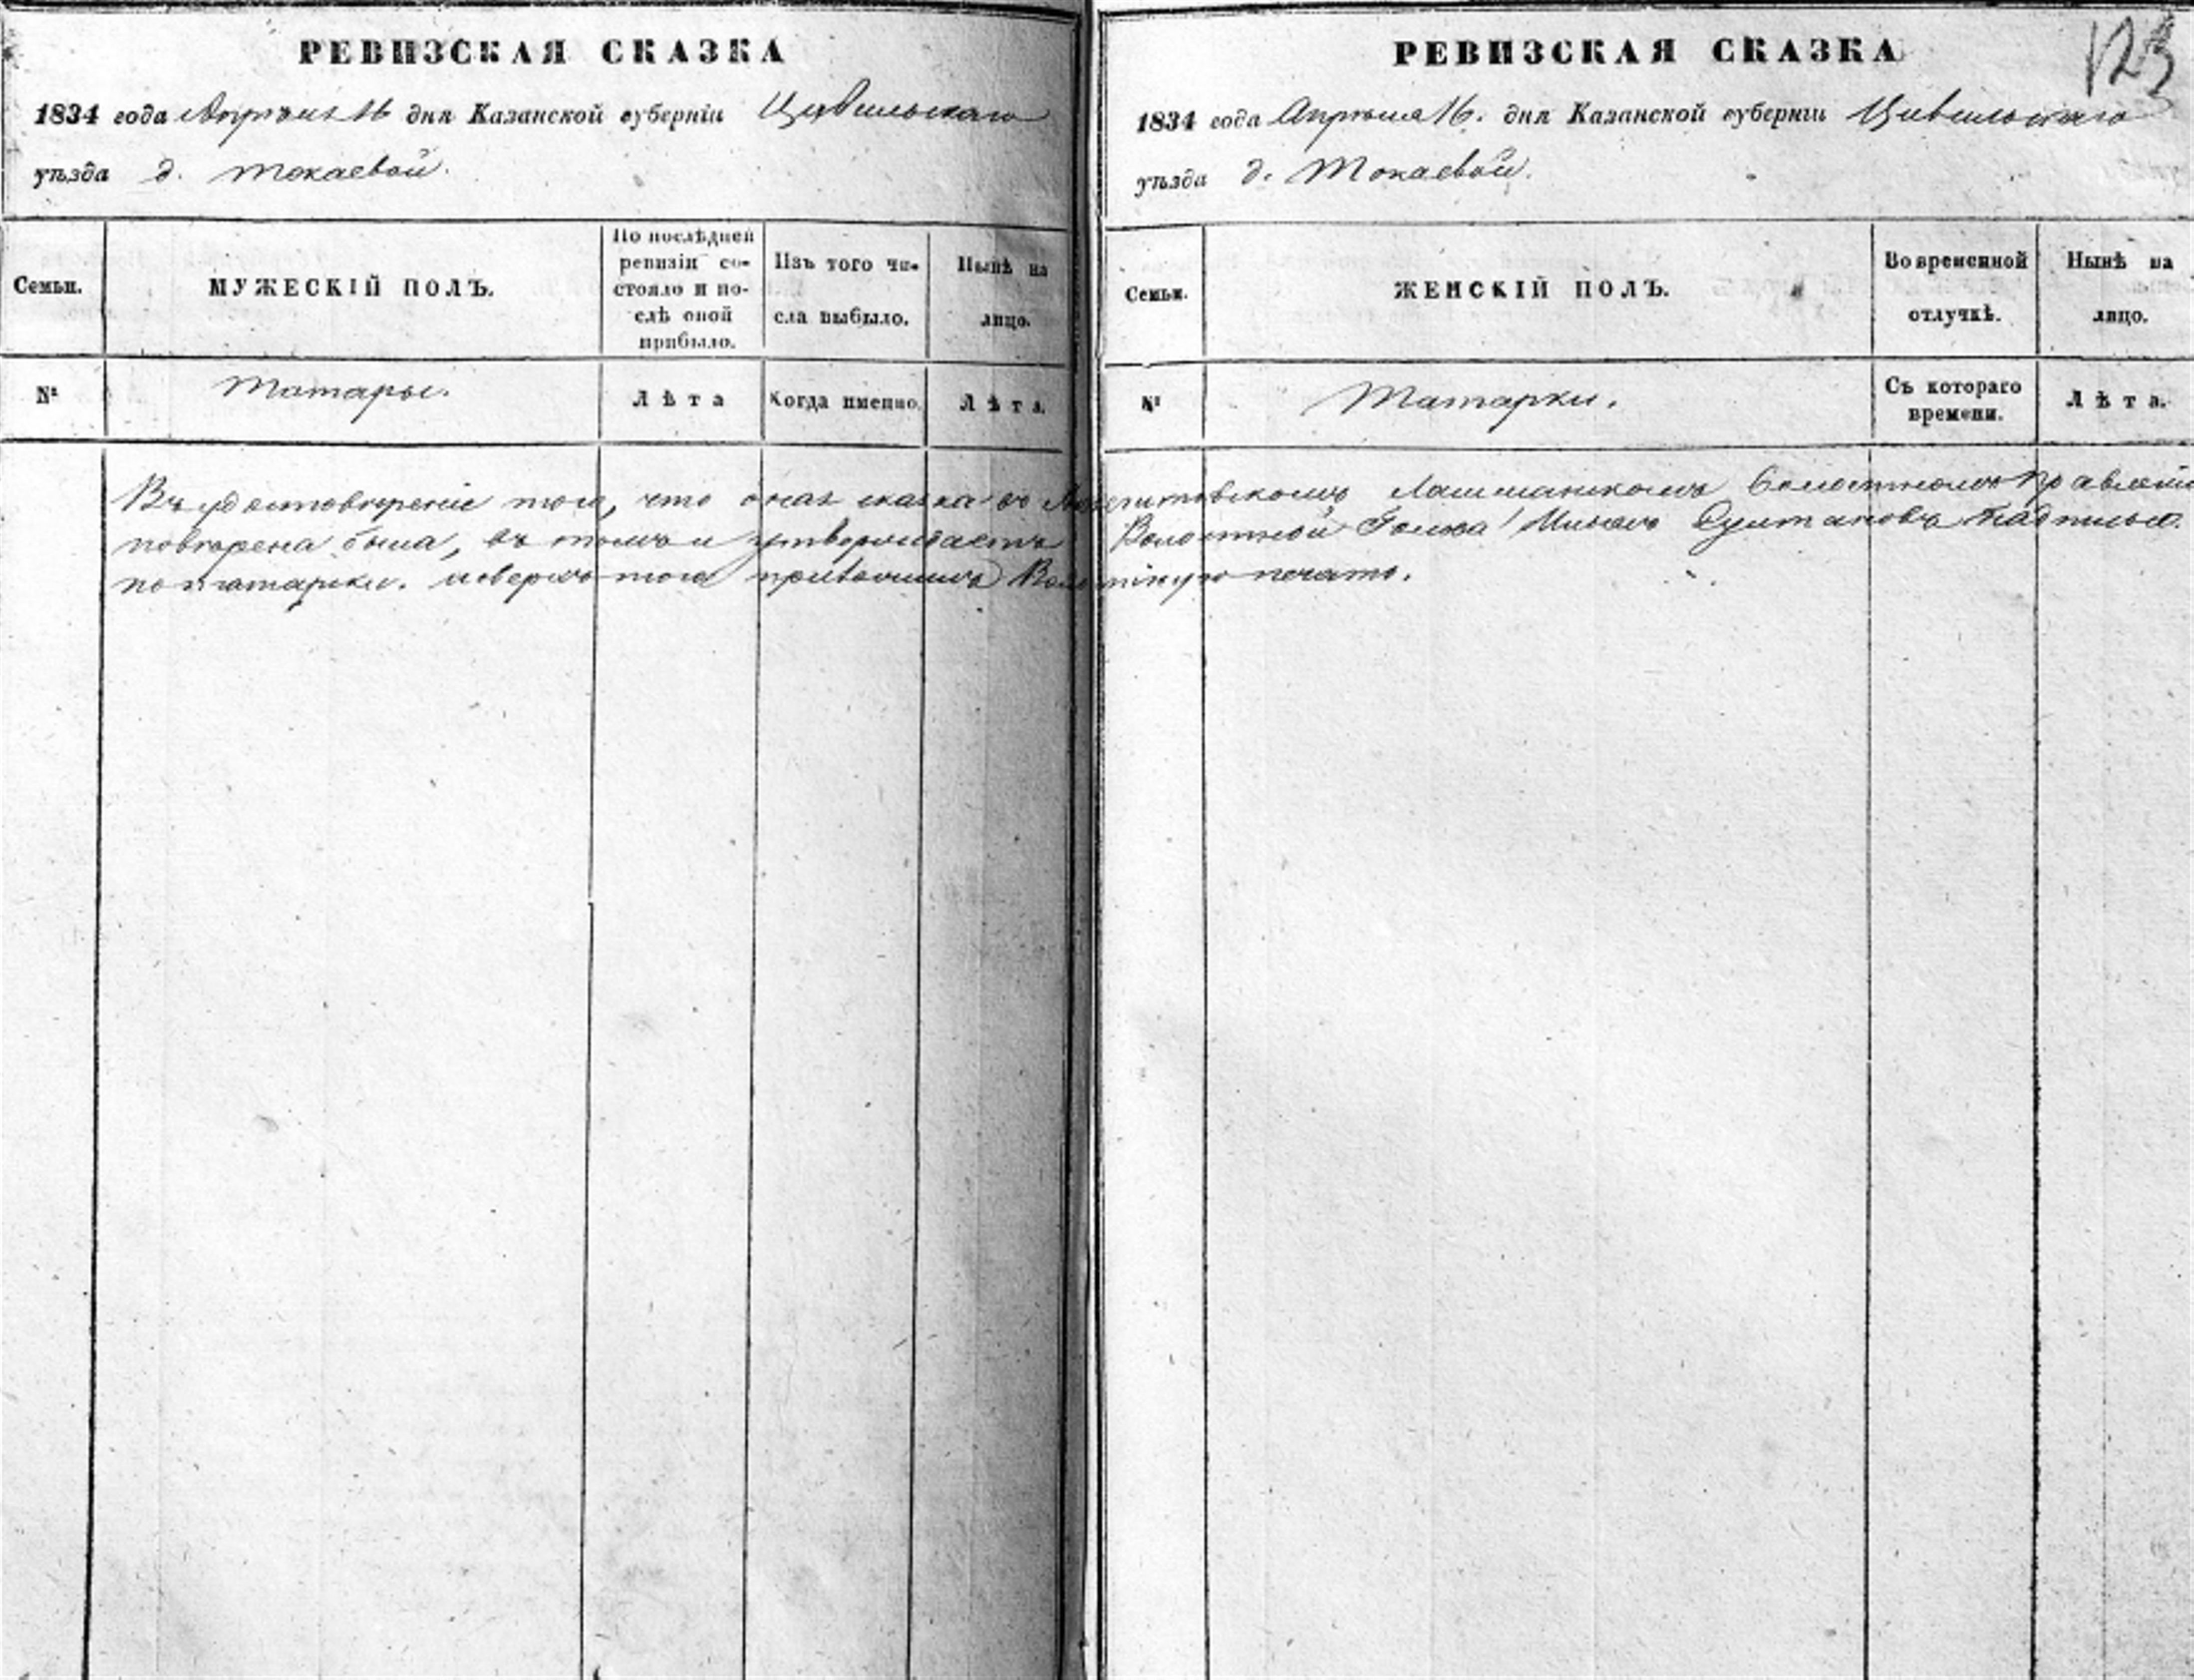 РЕВИЗСКАЯ СКАЗКА
1834 года Апрѣля 16 дня Казанской губерніи Цывильскаго
уѣзда д. Токаевой.
Семьи.
МУЖЕСКІЙ ПОЛЪ.
По послѣдней
ревизіи со-
стояло и по-
слѣ оной
прибыло.
Изъ того чи-
сла выбыло.
Нынѣ на
лицо.
№
Татары.
Лѣта
Когда именно.
Лѣта.
РЕВИЗСКАЯ СКАЗКА
123
1834 года Апрѣля 16. дня Казанской губерніи Цивильскаго
уѣзда д. Токаевой.
Семьи.
ЖЕНСКІЙ ПОЛЪ.
Во временной
отлучкѣ.
Нынѣ на
лицо.
№
Татарки.
Съ котораго
времени.
Лѣта.
Въ удостовѣреніе того, что оная сказка въ Лашманскомъ Волостномъ Правленіи
повѣрена была, въ томъ и утверждаетъ Волостной Голова Султановъ подписал
по татарски. и сверхъ того приложилъ Волостную печать.